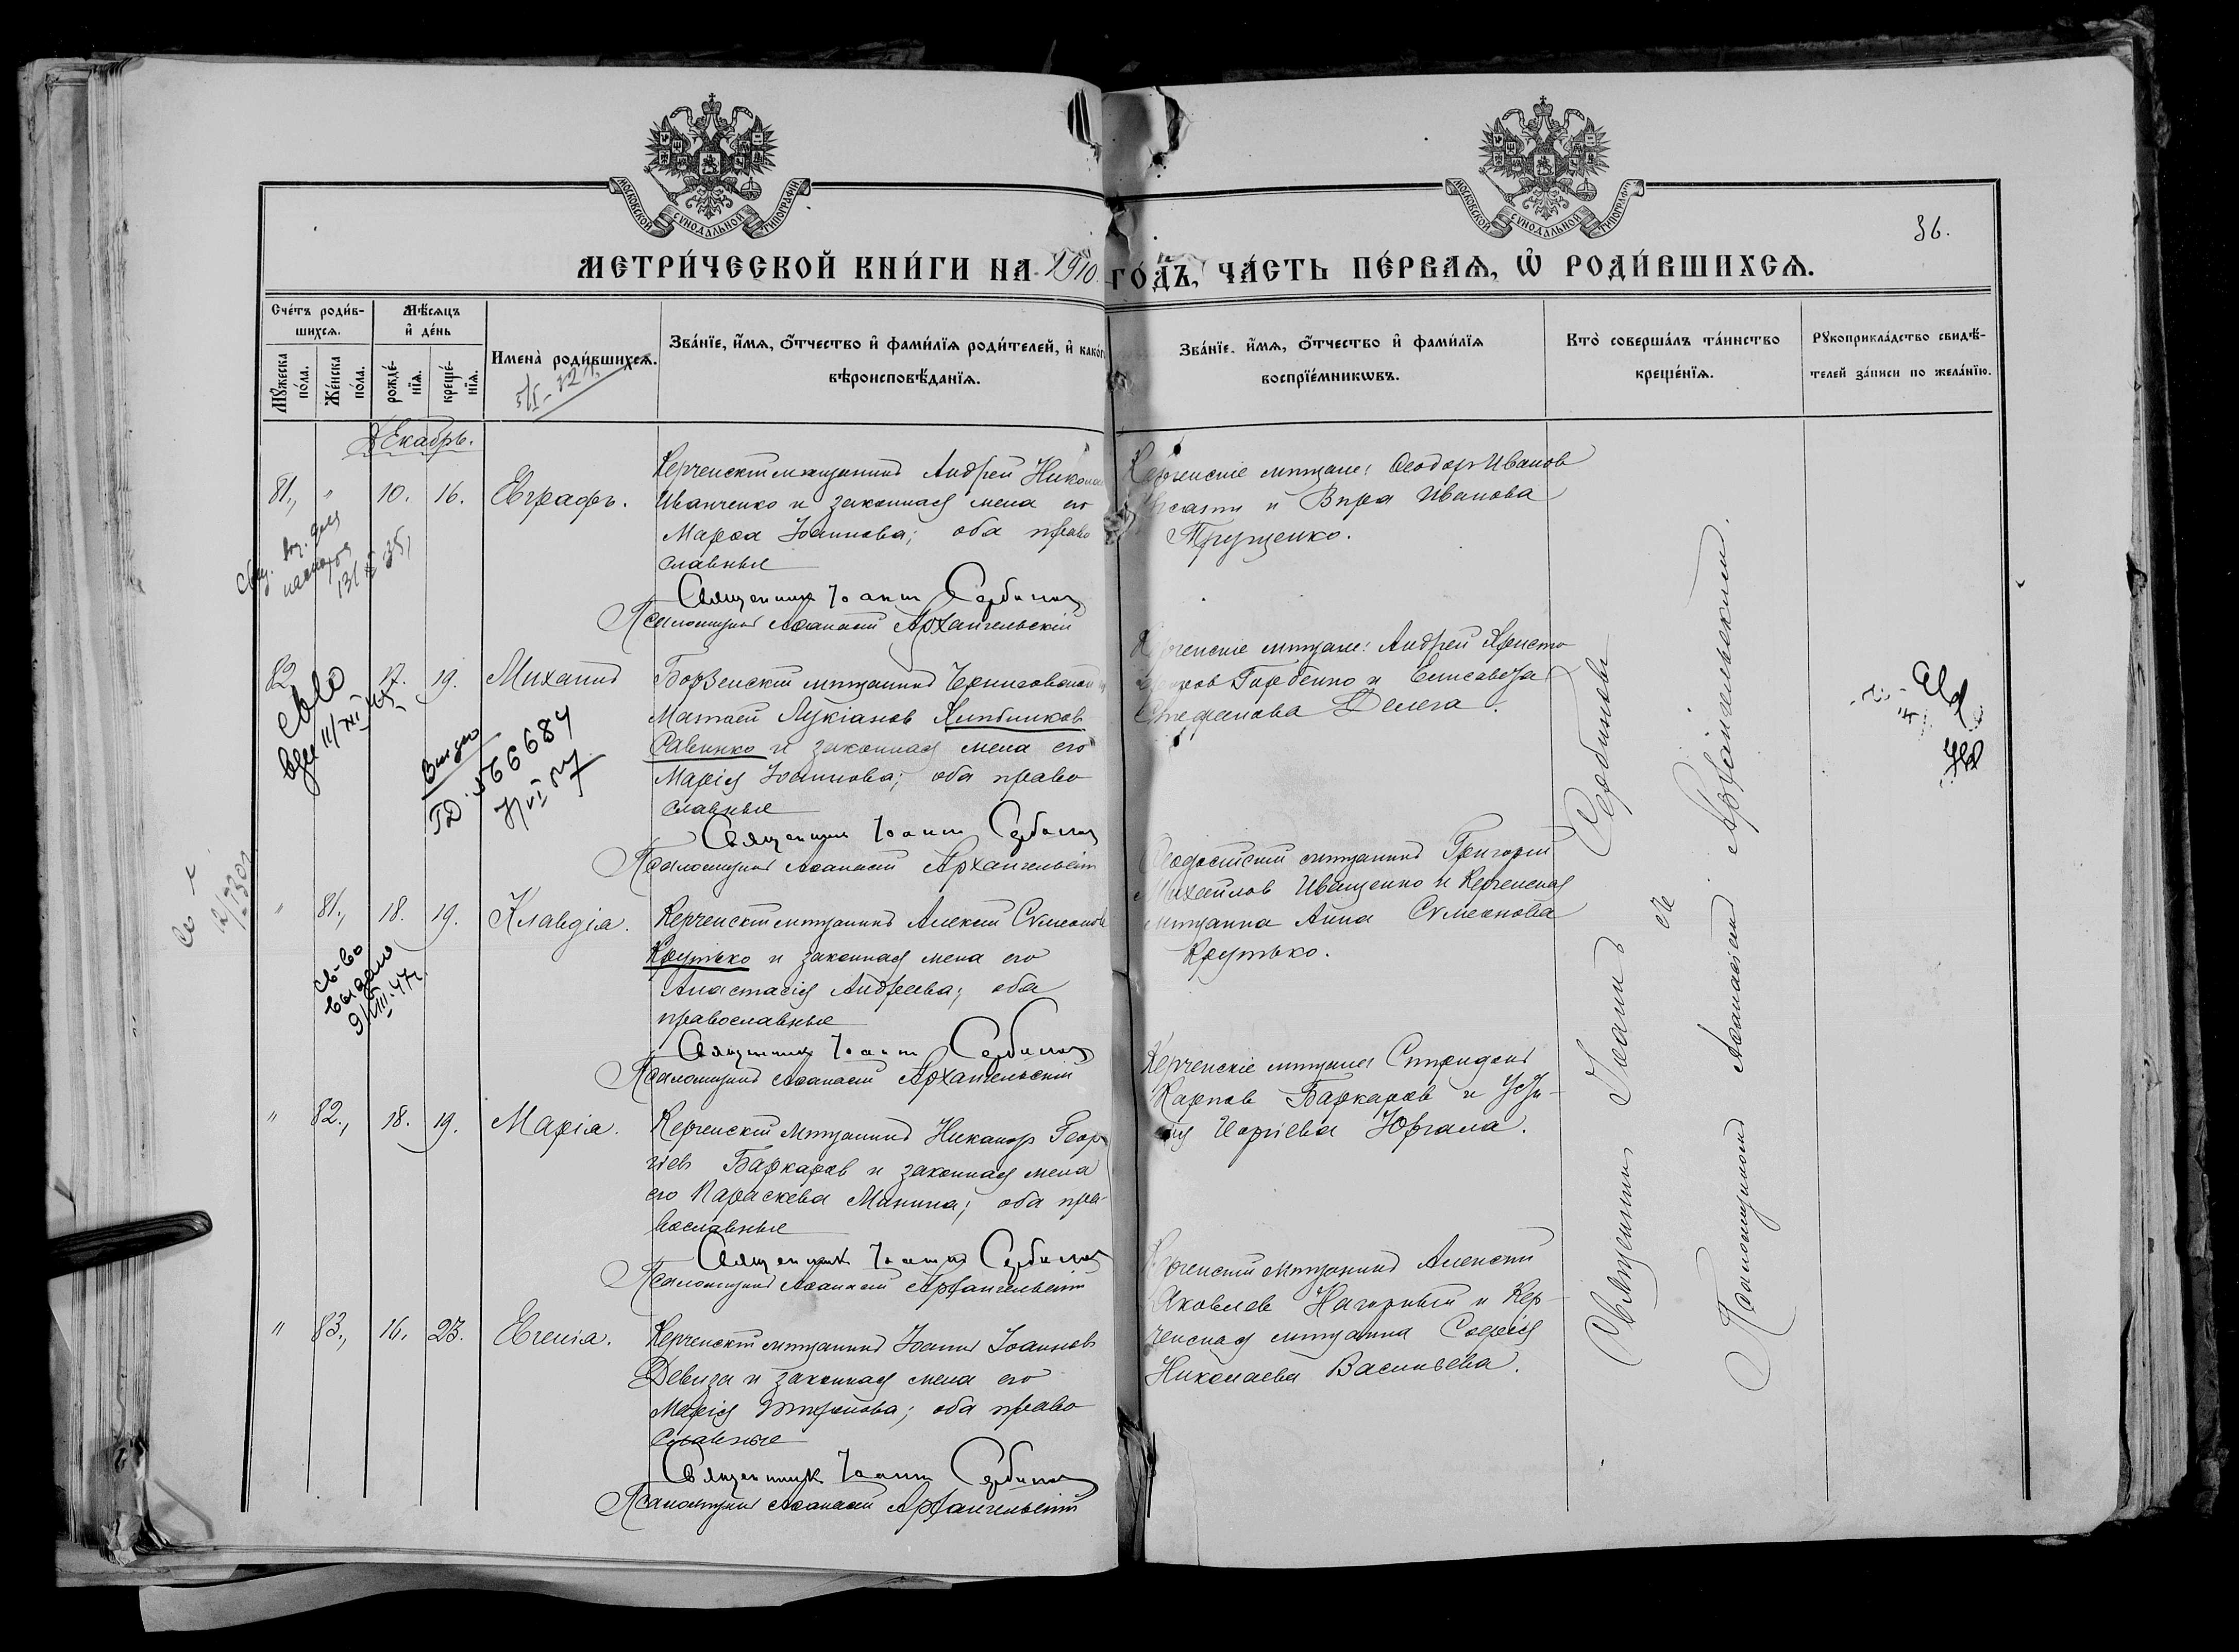 МОСКОВСКОЙ СѴНОДАЛЬНОЙ ТИПОГРАФІИ
МОСКОВСКОЙ СѴНОДАЛЬНОЙ ТИПОГРАФІИ
36.
МЕТРИ́ЧЕСКОЙ КНИ́ГИ НА 1910 ГО́ДЪ, ЧА́СТЬ ПЕ́РВАѦ, Ѡ҆ РОДИ́ВШИХСѦ.
Сче́тъ роди́в-
шихсѧ.
Мꙋ́жеска по́ла.
Же́нска по́ла.
Мѣ́сѧцъ
и҆ де́нь
рожде́-
нїѧ.
креще́-
нїѧ.
Имена̀ роди́вшихсѧ.
Зва́нїе, и҆́мѧ, ѻ҆́тчество и҆ фами́лїѧ роди́телей, и҆ како́гѡ
вѣроисповѣ́данїѧ.
Зва́нїе, и҆́мѧ, ѻ҆́тчество и҆ фами́лїѧ
воспрїе́мникѡвъ.
Кто̀ соверша́лъ та́инство
креще́нїѧ.
Рꙋкоприкла́дство свидѣ́-
телей за́писи по жела́нїю.
Декабрь.
81., " 10. 16. Евграфъ.
Керченскій мѣщанинъ Андрей
Иванченко и законная жена его
Марѳа Іоаннова; оба право
славные
Священникъ Іоаннъ Сербинов
Псаломщикъ Аѳанасій Архангельскій
Керченскіе мѣщане: Ѳеодоръ Иванов
и Вѣра Иванова
Трущенко.
82 17. 19. Михаилъ
Борзенскій мѣщанинъ
Матѳей Лукіанов
Савенко и законная жена его
Марія Іоаннова; оба право
славные
Священник Іоаннъ Сербинов
Псаломщикъ Аѳанасій Архангельскій
Керченскіе мѣщане: Андрей Христо
форов Горбенко и Елисавета
Стефанова
Выдано
№ 66684
" 81., 18. 19. Клавдіа.
Керченскій мѣщанинъ Алексій Сѵмеонов
Крутько и законная жена его
Анастасія Андреева; оба
православные
Священникъ Іоаннъ Сербинов
Псаломщикъ Аѳанасій Архангельскій
Ѳеодосійскій мѣщанинъ Григорій
Михайлов Иващенко и Керченская
мѣщанка Анна Сѵмеонова
Крутько.
св-во
выдано
9/VIII-47г.
" 82., 18. 19. Маріа.
Керченскій мѣщанинъ Никаноръ Геор
гіевъ Баркаров и законная жена
его Параскева Манина; оба пра-
вославные
Священникъ Іоаннъ Сербинов
Псаломщикъ Аѳанасій Архангельскій
Керченскіе мѣщане Спиридонъ
Карпов Баркаров и
Георгіева Юргала.
" 83., 16. 23. Евгеніа.
Керченскій мѣщанинъ Іоаннъ Іоаннов
Девиза и законная жена его
Марія; оба право
славные
Священникъ Іоаннъ Сербинов
Псаломщикъ Аѳанасій Архангельскій
Керченскій мѣщанинъ Алексій
Яковлев Нагорный и Кер-
ченская мѣщанка Софія
Николаева Васильева.
Священникъ Іоаннъ Сербиновъ
съ
Псаломщикомъ Аѳанасіемъ Архангельскимъ.